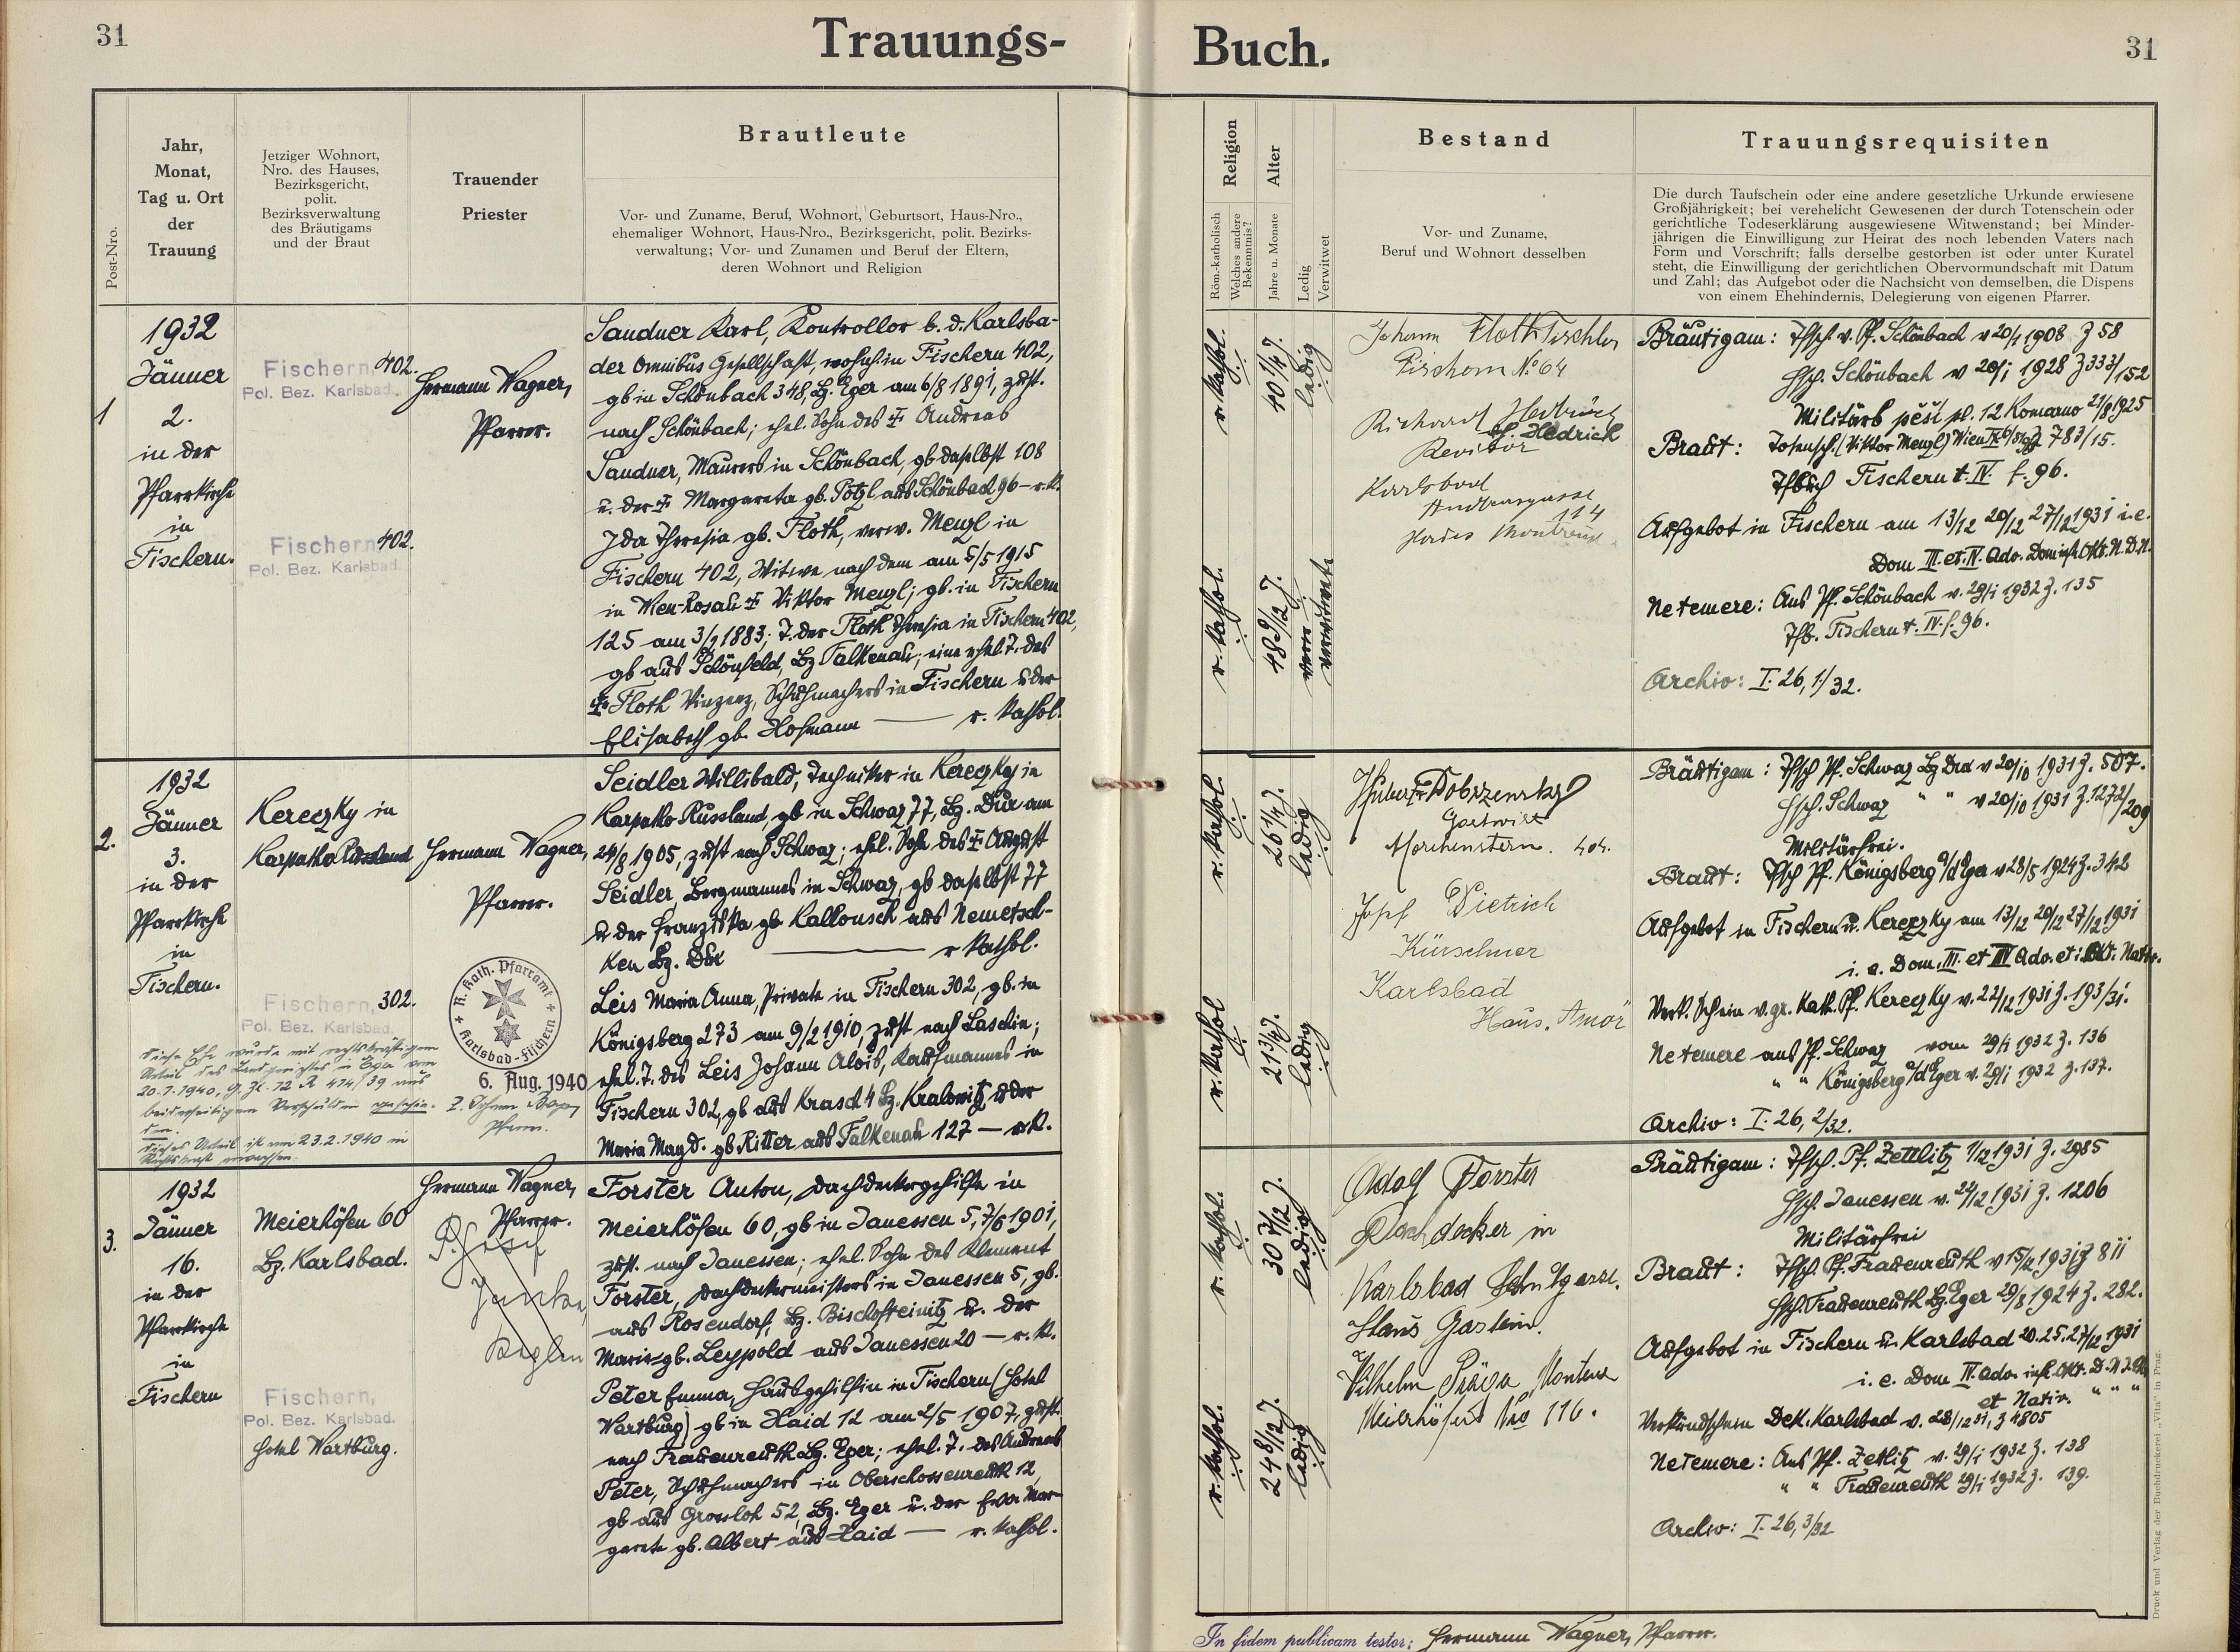 31
Trauungs-
Buch.
31
Post-Nro.
Jahr,
Monat,
Tag u. Ort
der
Trauung
Jetziger Wohnort,
Nro. des Hauses,
Bezirksgericht,
polit.
Bezirksverwaltung
des Bräutigams
und der Braut
Trauender
Priester
Brautleute
Vor- und Zuname, Beruf, Wohnort, Geburtsort, Haus-Nro.,
ehemaliger Wohnort, Haus-Nro., Bezirksgericht, polit. Bezirks-
verwaltung; Vor- und Zunamen und Beruf der Eltern,
deren Wohnort und Religion
Religion
Röm.-katholisch
Welches andere
Bekenntnis?
Alter
Jahre u. Monate
Ledig
Verwitwet
Bestand
Vor- und Zuname,
Beruf und Wohnort desselben
Trauungsrequisiten
Die durch Taufschein oder eine andere gesetzliche Urkunde erwiesene
Großjährigkeit; bei verehelicht Gewesenen der durch Totenschein oder
gerichtliche Todeserklärung ausgewiesene Witwenstand; bei Minder-
jährigen die Einwilligung zur Heirat des noch lebenden Vaters nach
Form und Vorschrift; falls derselbe gestorben ist oder unter Kuratel
steht, die Einwilligung der gerichtlichen Obervormundschaft mit Datum
und Zahl; das Aufgebot oder die Nachsicht von demselben, die Dispens
von einem Ehehindernis, Delegierung von eigenen Pfarrer.
1
1932
Jänner
2.
in der
Pfarrkirche
in
Fischern.
Fischern, 402.
Pol. Bez. Karlsbad.
Fischern 402.
Pol. Bez. Karlsbad.
Hermann Wagner,
Pfarrer.
Sandner Karl, Kontrollor b. d. Karlsba-
der Omnibus Gesellschaft, wohnh. in Fischern 402,
gb in Schönbach 348, Bz. Eger am 6/8 1891, zust.
nach Schönbach; ehel. Sohn des ‡ Andreas
Sandner, Maurers in Schönbach, gb daselbst 108
u. der ‡ Margareta gb. Pötzl aus Schönbach 96 — r.k.
Ida Theresia gb. Floth, verw. Menzl in
Fischern 402, Witwe nach dem am 5/5 1915
in Wien-Rosau ‡ Viktor Menzl; gb. in Fischern
125 am 3/2 1883; T. der Floth Theresia in Fischern 402,
gb aus Schönfeld, Bz Falkenau; eine ehel. T. des
‡ Floth Vinzenz, Schuhmachers in Fischern u. der
Elisabeth gb. Hofmann — r. kathol.
r. kathol.
40 1/4 J.
ledig
r. kathol.
48 9/12 J.
verwitwete
Johann Floth Tischler
Fischern No 64
Richard Hedrich
Hedrich
Revisor
Karlsbad
Andreasgasse
114
Bräutigam: Tfsch. v. Pf. Schönbach v 20/1 1908 Z 58
Hsch. Schönbach v 20/1 1928 Z 333/152
Militärb pěší pl. 12 Komarno 21/8 1925
Braut: Totensch. (Viktor Menzl) Wien 783/15.
Tfbuch Fischern t. IV. f. 96.
Aufgebot in Fischern am 13/12 20/12 27/12 1931 i. e.
Dom III. et. IV. Adv. Dom infr. Okt. N. D. N.
Ne temere: Aus Pf. Schönbach v. 29/1 1932 Z. 135
Tfb. Fischern t. IV. f. 96.
Archiv: I. 26, 1/32.
2.
1932
Jänner
3.
in der
Pfarrkirche
in
Fischern.
Kereczky in
Karpatho Russland
Fischern, 302.
Pol. Bez. Karlsbad.
Diese Ehe wurde mit rechtskräftigem
Urteil des Landgerichtes in Eger vom
20.1.1940, G. Zl. 12 R 474/39 aus
beiderseitigem Verschulden geschie-
den.
Dieses Urteil ist am 23.2.1940 in
Rechtskraft erwachsen.
Hermann Wagner,
Pfarrer.
R. Kath. Pfarramt
Karlsbad-Fischern
6. Aug. 1940
Pfarrer.
Seidler Willibald, Techniker in Kereczky in
Karpatho Russland, gb in Schwaz 77, Bz. Dux am
24/8 1905, zust nach Schwaz; ehel. Sohn des ‡ August
Seidler, Bergmannes in Schwaz, gb daselbst 77
u. der Franziska gb Kallousch aus Nemetsch-
ken Bz. Dux — r kathol.
Leis Maria Anna, Private in Fischern 302, gb. in
Königsberg 273 am 9/2 1910, zust nach Laschin;
ehel. T. des Leis Johann Alois, Kaufmannes in
Fischern 302, gb aus Krasch 4 Bz. Kralowitz u der
Maria Magd. gb Ritter aus Falkenau 127 — r.k.
r. kathol.
26 1/4 J.
ledig
r. kathol
21 3/4 J.
ledig
Hubert Dobrzensky
Gastwirt
Morchenstern. 404.
Josef Dietrich
Kürschner
Karlsbad
Haus. Amor
Bräutigam: Tfsch Pf. Schwaz Bz Dux v 20/10 1931 Z. 507.
Hsch. Schwaz " " v 20/10 1931 Z. 1272/209
Militärfrei.
Braut: Tfsch Pf. Königsberg a/d Eger v 28/5 1924 Z. 342
Aufgebot in Fischern u. Kereczky am 13/12 20/12 27/12 1931
i. e. Dom. III. et IV Adv. et i. Okt. Nativ.
Verk. Schein v. gr. Kath. Pf. Kereczky v. 22/12 1931 Z. 193/31.
Ne temere aus Pf. Schwaz vom 29/1 1932 Z. 136
" " Königsberg a/d Eger v. 29/1 1932 Z. 137.
Archiv: I. 26, 2/32.
3.
1932
Jänner
16.
in der
Pfarrkirche
in
Fischern
Meierhöfen 60
Bz. Karlsbad.
Fischern,
Pol. Bez. Karlsbad.
Hotel Wartburg.
Hermann Wagner,
Pfarrer.
P. Josef
Forster Anton, Dachdeckergehilfe in
Meierhöfen 60, gb in Janessen 5, 7/6 1901,
zust. nach Janessen; ehel. Sohn des Klement
Forster, Dachdeckermeisters in Janessen 5, gb.
aus Rosendorf, Bz. Bischofteinitz u. der
Marie gb. Leypold aus Janessen 20 — r. k.
Peter Emma, Hausgehilfin in Fischern (Hotel
Wartburg) gb in Haid 12 am 2/5 1907, zust.
nach Frauenreuth Bz. Eger; ehel. T. des Andreas
Peter, Schuhmachers in Oberschossenreuth 12,
gb aus Grossloh 52, Bz. Eger u. der Eva Mar-
gareta gb. Albert aus Haid — r. kathol.
r. kathol.
30 7/12 J.
ledig
r. kathol.
24 8/12 J.
ledig
Adolf Forster
Dachdecker in
Karlsbad Schulgasse.
Haus Gastein.
Wilhelm Präga Monteur
Meierhöfen No 116.
Bräutigam: Tfsch. Pf. Zettlitz 1/12 1931 Z. 2985
Hsch. Janessen v. 24/12 1931 Z. 1206
Militärfrei
Braut: Tfsch. Pf. Frauenreuth v 15/12 1931 Z 811
Hsch. Frauenreuth Bz. Eger 29/8 1924 Z. 282.
Aufgebot in Fischern u. Karlsbad 20. 25. 27/12 1931
i. e. Dom IV. Adv. infr. Okt. D. N.
et Nativ. " " "
Verkündschein Dek. Karlsbad v. 28/12 31, Z 4805
Ne temere: Aus Pf. Zettlitz v. 29/1 1932 Z. 138
" " Frauenreuth 29/1 1932 Z. 139.
Archiv: I. 26, 3/32
In fidem publicam testor: Hermann Wagner, Pfarrer.
Druck und Verlag der Buchdruckerei „Vita" in Prag.